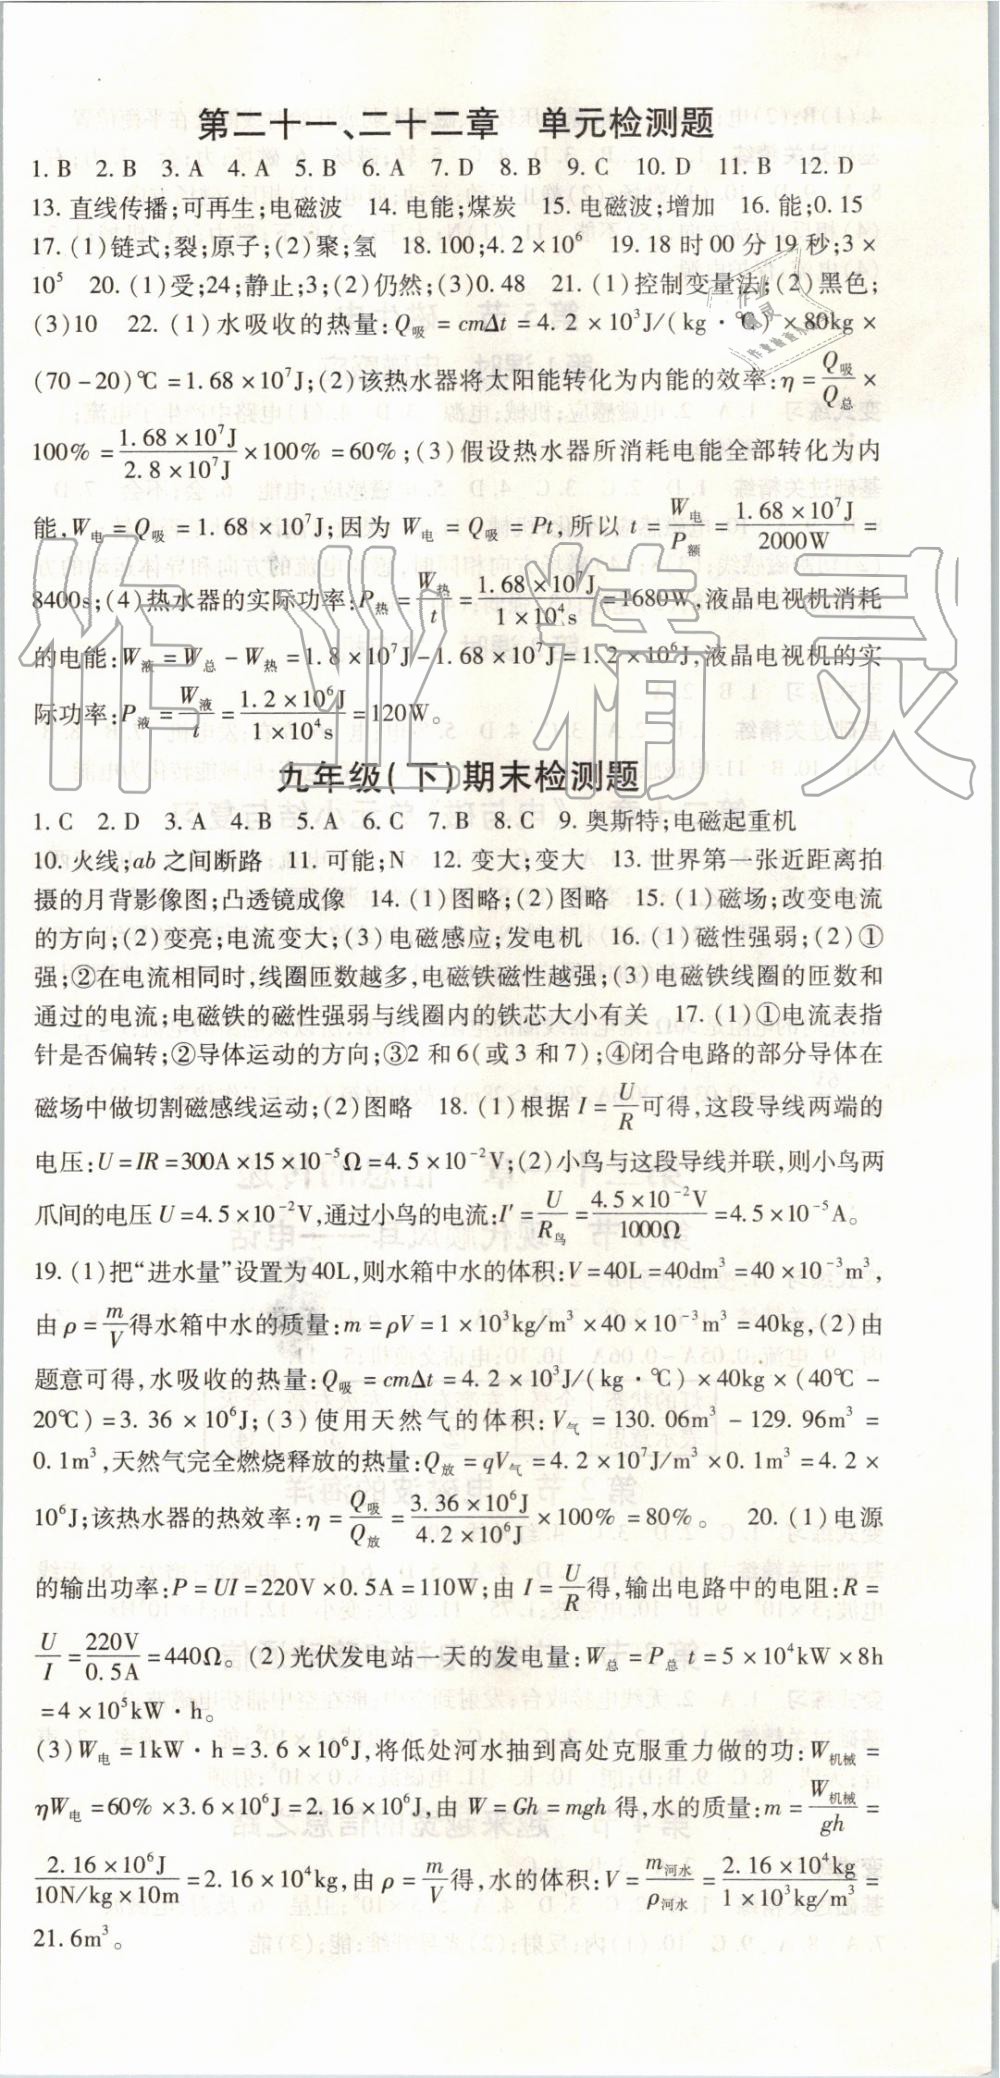 第二十一、二十二章　单元检测题
1. B　2. B　3. A　4. A　5. B　6. A　7. D　8. B　9. C　10. D　11. B　12. D
13. 直线传播;可再生;电磁波　14. 电能;煤炭　15. 电磁波;增加　16. 能;0.15
17. (1)链式;裂;原子;(2)聚;氢　18. 100;4.2×10⁶　19. 18时00分19秒;3×
10⁵　20. (1)受;24;静止;3;(2)仍然;(3)0.48　21. (1)控制变量法;(2)黑色;
(3)10　22. (1)水吸收的热量:Q吸=cmΔt=4.2×10³J/(kg·℃)×80kg×
(70-20)℃=1.68×10⁷J;(2)该热水器将太阳能转化为内能的效率:η=Q吸/Q总×
100%=1.68×10⁷J/2.8×10⁷J×100%=60%;(3)假设热水器所消耗电能全部转化为内
能,W电=Q吸=1.68×10⁷J;因为W电=Q吸=Pt,所以t=W电/P额=1.68×10⁷J/2000W=
8400s;(4)热水器的实际功率:P热=W热/t=1.68×10⁷J/1×10⁴s=1680W,液晶电视机消耗
的电能:W液=W总-W热=1.8×10⁷J-1.68×10⁷J=1.2×10⁶J,液晶电视机的实
际功率:P液=W液/t=1.2×10⁶J/1×10⁴s=120W。
九年级(下)期末检测题
1. C　2. D　3. A　4. B　5. A　6. C　7. B　8. C　9. 奥斯特;电磁起重机
10. 火线;ab之间断路　11. 可能;N　12. 变大;变大　13. 世界第一张近距离拍
摄的月背影像图;凸透镜成像　14. (1)图略;(2)图略　15. (1)磁场;改变电流
的方向;(2)变亮;电流变大;(3)电磁感应;发电机　16. (1)磁性强弱;(2)①
强;②在电流相同时,线圈匝数越多,电磁铁磁性越强;(3)电磁铁线圈的匝数和
通过的电流;电磁铁的磁性强弱与线圈内的铁芯大小有关　17. (1)①电流表指
针是否偏转;②导体运动的方向;③2和6(或3和7);④闭合电路的部分导体在
磁场中做切割磁感线运动;(2)图略　18. (1)根据I=U/R可得,这段导线两端的
电压:U=IR=300A×15×10⁻⁵Ω=4.5×10⁻²V;(2)小鸟与这段导线并联,则小鸟两
爪间的电压U=4.5×10⁻²V,通过小鸟的电流:I′=U/R鸟=4.5×10⁻²V/1000Ω=4.5×10⁻⁵A。
19. (1)把“进水量”设置为40L,则水箱中水的体积:V=40L=40dm³=40×10⁻³m³,
由ρ=m/V得水箱中水的质量:m=ρV=1×10³kg/m³×40×10⁻³m³=40kg,(2)由
题意可得,水吸收的热量:Q吸=cmΔt=4.2×10³J/(kg·℃)×40kg×(40℃-
20℃)=3.36×10⁶J;(3)使用天然气的体积:V气=130.06m³-129.96m³=
0.1m³,天然气完全燃烧释放的热量:Q放=qV气=4.2×10⁷J/m³×0.1m³=4.2×
10⁶J;该热水器的热效率:η=Q吸/Q放=3.36×10⁶J/4.2×10⁶J×100%=80%。　20. (1)电源
的输出功率:P=UI=220V×0.5A=110W;由I=U/R得,输出电路中的电阻:R=
U/I=220V/0.5A=440Ω。(2)光伏发电站一天的发电量:W总=P总t=5×10⁴kW×8h
=4×10⁵kW·h。
(3)W电=1kW·h=3.6×10⁶J,将低处河水抽到高处克服重力做的功:W机械=
ηW电=60%×3.6×10⁶J=2.16×10⁶J,由W=Gh=mgh得,水的质量:m=W机械/gh=
2.16×10⁶J/10N/kg×10m=2.16×10⁴kg,由ρ=m/V得,水的体积:V=m河水/ρ河水=2.16×10⁴kg/1×10³kg/m³=
21.6m³。
作业精灵